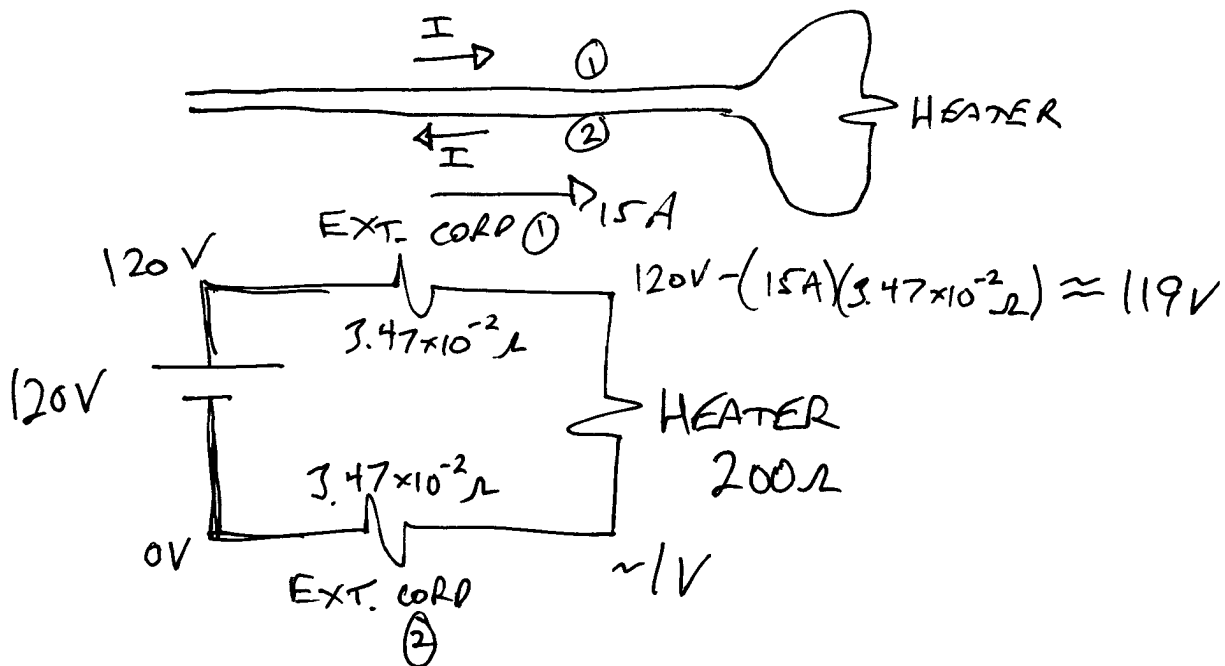 I ①
HEATER
② I
15A
EXT. CORD ①
120V 120V-(15A)(3.47×10⁻²Ω) ≈ 119V
3.47×10⁻²Ω
120V
HEATER
200Ω
3.47×10⁻²Ω
0V ~1V
EXT. CORD
②